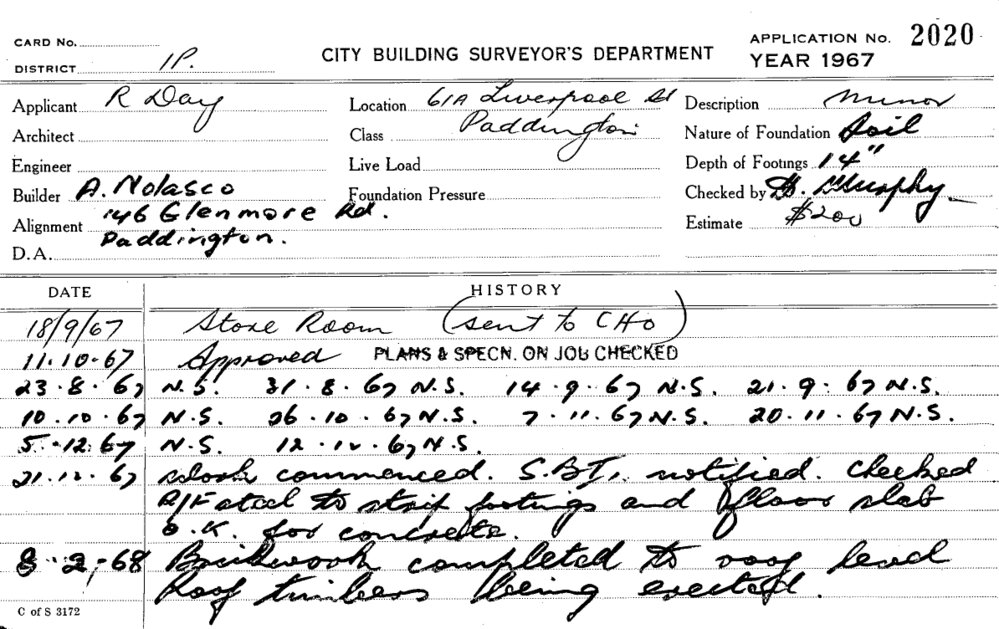 CARD No.
DISTRICT 1P.
CITY BUILDING SURVEYOR'S DEPARTMENT
APPLICATION No. 2020
YEAR 1967
Applicant R Day
Location 61A Liverpool St
Description Minor
Architect
Class Paddington
Nature of Foundation Soil
Engineer
Live Load
Depth of Footings 14"
Builder A. Nolasco
Foundation Pressure
Checked by Murphy
146 Glenmore Rd.
Alignment
Paddington.
Estimate $200
D.A.
DATE HISTORY
18/9/67 Store Room (sent to CHO)
11.10.67 Approved PLANS & SPECN. ON JOB CHECKED
23.8.67 N.S. 31.8.67 N.S. 14.9.67 N.S. 21.9.67 N.S.
10.10.67 N.S. 26.10.67 N.S. 7.11.67 N.S. 20.11.67 N.S.
5.12.67 N.S. 12.12.67 N.S.
21.12.67 Work commenced. S.B.I. notified. Checked
R/F steel to strip footings and floor slab
O.K. for concrete.
8.2.68 Brickwork completed to roof level
Roof timbers being erected.
C of S 3172